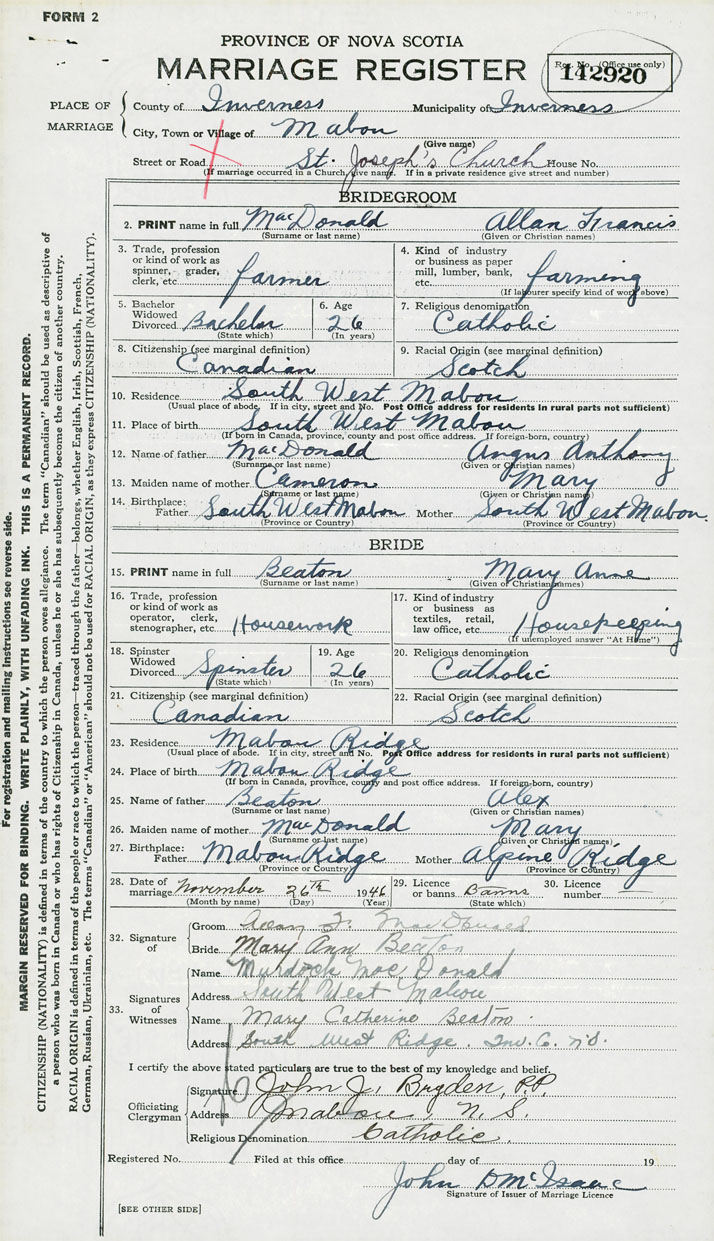 FORM 2
PROVINCE OF NOVA SCOTIA
MARRIAGE REGISTER
Reg. No. (Office use only)
142920
PLACE OF MARRIAGE
County of Inverness Municipality of Inverness
City, Town or Village of Mabou
(Give name)
Street or Road St. Joseph's Church House No.
(If marriage occurred in a Church, give name. If in a private residence give street and number)
BRIDEGROOM
2. PRINT name in full MacDonald Allan Francis
(Surname or last name) (Given or Christian names)
3. Trade, profession or kind of work as spinner, grader, clerk, etc. farmer
4. Kind of industry or business as paper mill, lumber, bank, etc. farming
(If labourer specify kind of work above)
5. Bachelor Widowed Divorced Bachelor
(State which)
6. Age 26
(In years)
7. Religious denomination Catholic
8. Citizenship (see marginal definition) Canadian
9. Racial Origin (see marginal definition) Scotch
10. Residence South West Mabou
(Usual place of abode. If in city, street and No. Post Office address for residents in rural parts not sufficient)
11. Place of birth South West Mabou
(If born in Canada, province, county and post office address. If foreign-born, country)
12. Name of father MacDonald Angus Anthony
(Surname or last name) (Given or Christian names)
13. Maiden name of mother Cameron Mary
(Surname or last name) (Given or Christian names)
14. Birthplace: Father South West Mabou Mother South West Mabou
(Province or Country) (Province or Country)
BRIDE
15. PRINT name in full Beaton Mary Anne
(Surname or last name) (Given or Christian names)
16. Trade, profession or kind of work as operator, clerk, stenographer, etc. Housework
17. Kind of industry or business as textiles, retail, law office, etc. Housekeeping
(If unemployed answer "At Home")
18. Spinster Widowed Divorced Spinster
(State which)
19. Age 26
(In years)
20. Religious denomination Catholic
21. Citizenship (see marginal definition) Canadian
22. Racial Origin (see marginal definition) Scotch
23. Residence Mabou Ridge
(Usual place of abode. If in city, street and No. Post Office address for residents in rural parts not sufficient)
24. Place of birth Mabou Ridge
(If born in Canada, province, county and post office address. If foreign-born, country)
25. Name of father Beaton Alex
(Surname or last name) (Given or Christian names)
26. Maiden name of mother MacDonald Mary
(Surname or last name) (Given or Christian names)
27. Birthplace: Father Mabou Ridge Mother Alpine Ridge
(Province or Country) (Province or Country)
28. Date of marriage November 26th 1946
(Month by name) (Day) (Year)
29. Licence or banns Banns
(State which)
30. Licence number
32. Signature of
Groom Allan F. MacDonald
Bride Mary Ann Beaton
33. Signatures of Witnesses
Name Murdock MacDonald
Address South West Mabou
Name Mary Catherine Beaton
Address South West Ridge. Inv. Co. N.S.
I certify the above stated particulars are true to the best of my knowledge and belief.
Officiating Clergyman
Signature John J. Bryden, P.P.
Address Mabou, N. S.
Religious Denomination Catholic.
Registered No. Filed at this office day of 19
John D McIsaac
Signature of Issuer of Marriage Licence
[SEE OTHER SIDE]
For registration and mailing instructions see reverse side.
MARGIN RESERVED FOR BINDING. WRITE PLAINLY, WITH UNFADING INK. THIS IS A PERMANENT RECORD.
CITIZENSHIP (NATIONALITY) is defined in terms of the country to which the person owes allegiance. The term "Canadian" should be used as descriptive of
a person who was born in Canada or who has rights of Citizenship in Canada, unless he or she has subsequently become the citizen of another country.
RACIAL ORIGIN is defined in terms of the people or race to which the person—traced through the father—belongs, whether English, Irish, Scottish, French,
German, Russian, Ukrainian, etc. The terms "Canadian" or "American" should not be used for RACIAL ORIGIN, as they express CITIZENSHIP (NATIONALITY).